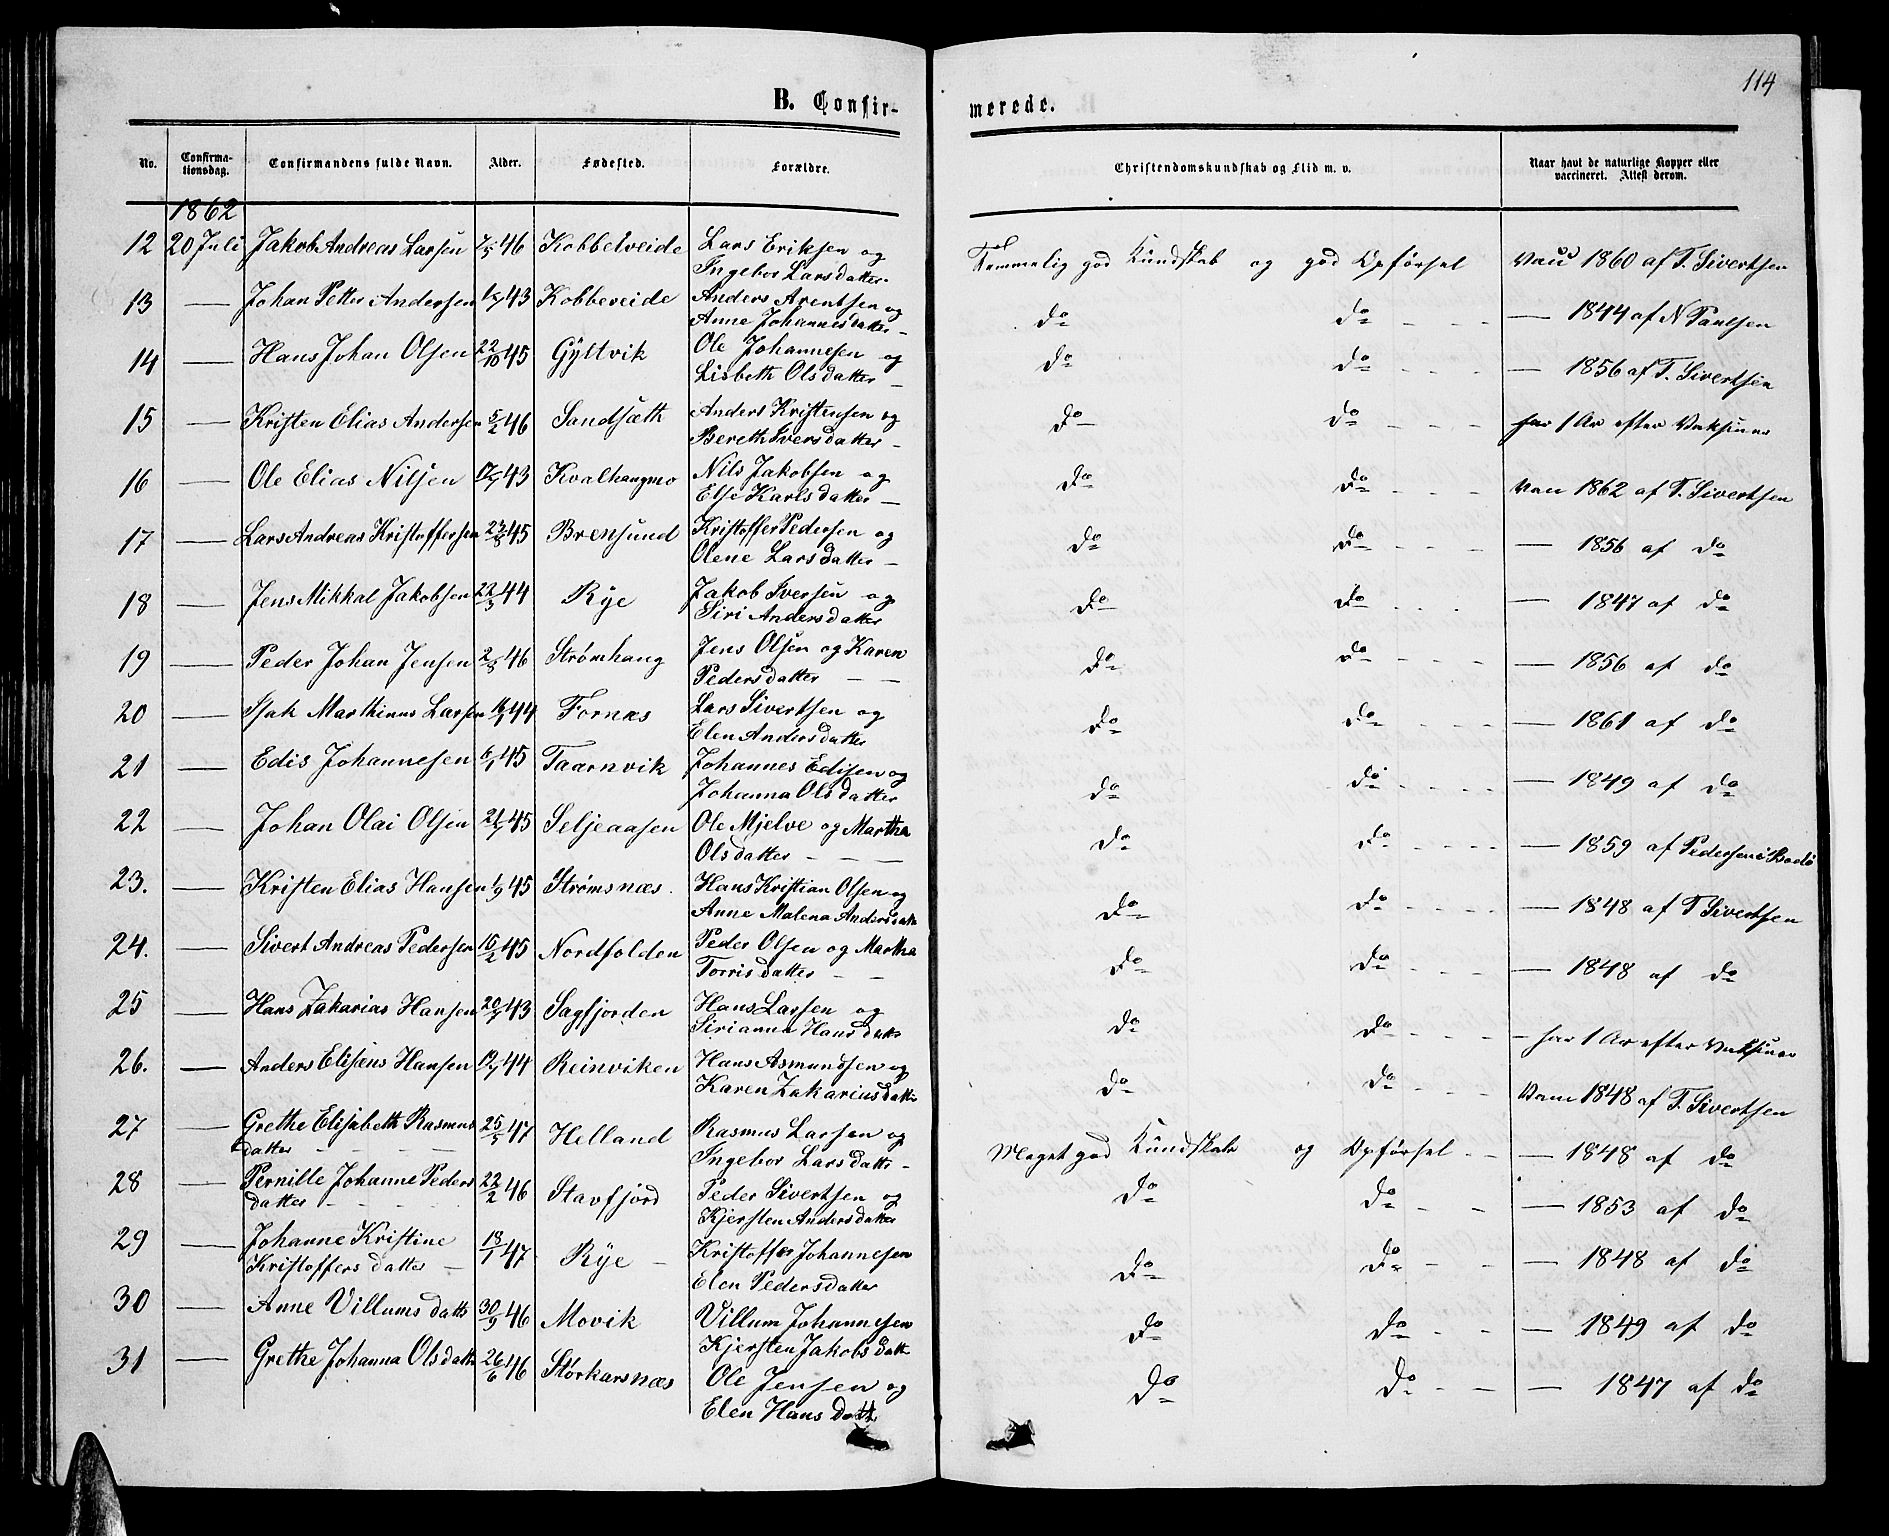 114
B. Confirmerede.
No. Confirmationsdag. Confirmandens fulde Navn. Alder. Fødested. Forældre. Christendomskundskab og Flid m. v. Naar havt de naturlige Kopper eller vaccineret. Attest derom.
1862
12 20 Juli Jakob Andreas Larsen 46 Kobbelveide Lars Eriksen og Temmelig god Kundskab og god Opførsel 1860 af T. Sivertsen
Ingebor Larsdatter
13 — Johan Petter Andersen 43 Kobbeveide Anders Arentsen og do do — 1844 af N Paulsen
Anne Johannesdatter —
14 — Hans Johan Olsen 22/10 45 Gyltvik Ole Johannesen og do do — 1856 af T. Sivertsen
Lisbeth Olsdatter —
15 — Kristen Elias Andersen 5/2 46 Sandsæth Anders Kristensen og do do har 1 Ar efter Vaksiner
Bereth Iversdatter —
16 — Ole Elias Nilsen 43 Kvalhangmo Nils Jakobsen og do do 1862 af T. Sivertsen
Else Karlsdatter —
17 — Lars Andreas Kristoffersen 45 Brensund Kristoffer Pedersen og do do — 1856 af do
Olene Larsdatter —
18 — Jens Mikkal Jakobsen 22/3 44 Rye Jakob Iversen og do do — 1847 af do
Siri Andersdatter
19 — Peder Johan Jensen 2/8 46 Strømhang Jens Olsen og Karen do do — 1856 af do
Pedersdatter — —
20 — Isak Marthinus Larsen 44 Fornæs Lars Sivertsen og do do — 1861 af do
Elen Andersdatter
21 — Edis Johannesen 6/1 45 Taarnvik Johannes Edisen og do do — 1849 af do
Johanna Olsdatter
22 — Johan Olai Olsen 45 Seljeaasen Ole Mjelve og Martha do do — 1859 af Pedersen i Bodø
Olsdatter — — —
23. — Kristen Elias Hansen 1/9 45 Strømsnæs. Hans Kristian Olsen og do do — 1848 af T Sivertsen
Anne Malena Andersdatt
24. — Sivert Andreas Pedersen 15/2 45 Nordfolden Peder Olsen og Martha do do — 1848 af do
Torrisdatter — —
25 — Hans Zakarias Hansen 43 Sagfjorden Hans Larsen og do do — har 1 Ar efter Vaksiner
Sirianna Hansdatt
26. — Anders Eliseus Hansen 44 Reinviken Hans Asmundsen og do do 1848 af T. Sivertsen
Karen Zakariasdatter
27 — Grethe Elisabeth Rasmus 25/5 47 Helland Rasmus Larsen og Meget god Kundskab og Opførsel — 1848 af do
datter Ingebor Larsdatt —
28 — Pernille Johanne Peders 22/2 46 Stavfjord Peder Sivertsen og do do — 1853 af do
datter Kjersten Andersdatter
29 — Johanne Kristine 18/1 47 Rye — Kristoffer Johannesen do do — 1848 af do
Kristoffersdatter — Elen Pedersdatter
30 — Anne Villumsdatt 30/9 46 Movik Villum Johannesen do do — 1849 af do
Kjersten Jakobsdatt
31 — Grethe Johanna Olsdatt 26/6 46 Størkarsnæs Ole Jensen og do do — 1847 af do
Elen Hansdatt